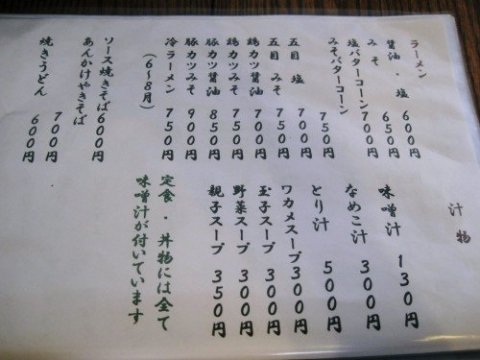 ラーメン
醤油・塩 600円
みそ 650円
塩バターコーン 700円
みそバターコーン 750円
五目 塩 700円
五目 みそ 750円
鶏カツ醤油 700円
鶏カツみそ 750円
豚カツ醤油 850円
豚カツみそ 900円
冷ラーメン 750円
(6~8月)
ソース焼きそば 600円
あんかけやきそば 700円
焼きうどん 600円
汁物
味噌汁 130円
なめこ汁 300円
とり汁 500円
ワカメスープ 300円
玉子スープ 300円
野菜スープ 300円
親子スープ 350円
定食・丼物には全て
味噌汁が付いています